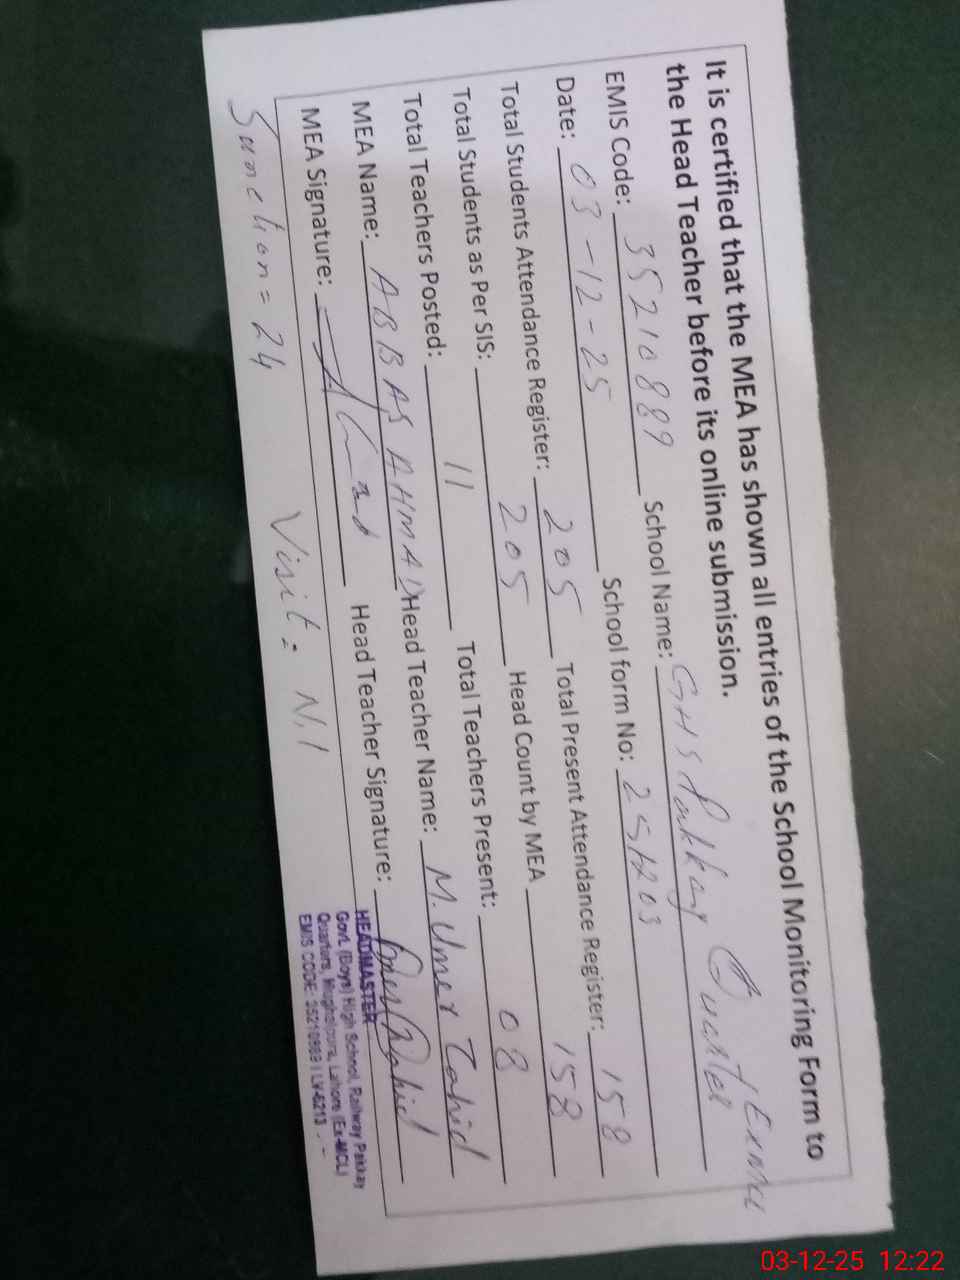 It is certified that the MEA has shown all entries of the School Monitoring Form to
the Head Teacher before its online submission.
EMIS Code: 35210889 School Name: GHS Pakkay Quarter
Date: 03-12-25 School form No:
Total Students Attendance Register: 205 Total Present Attendance Register: 158
Total Students as Per SIS: 205 Head Count by MEA 158
Total Teachers Posted: 11 Total Teachers Present: 08
MEA Name: ABBAS AHMAD Head Teacher Name: M. Umer Zahid
MEA Signature: Head Teacher Signature:
HEADMASTER
Govt. (Boys) High School, Railway Pakkay
Quarters, Mughalpura, Lahore (Ex-MCL)
EMIS CODE: 35210889 I LV-6213
Sanction = 24 Visit = Nil
03-12-25 12:22